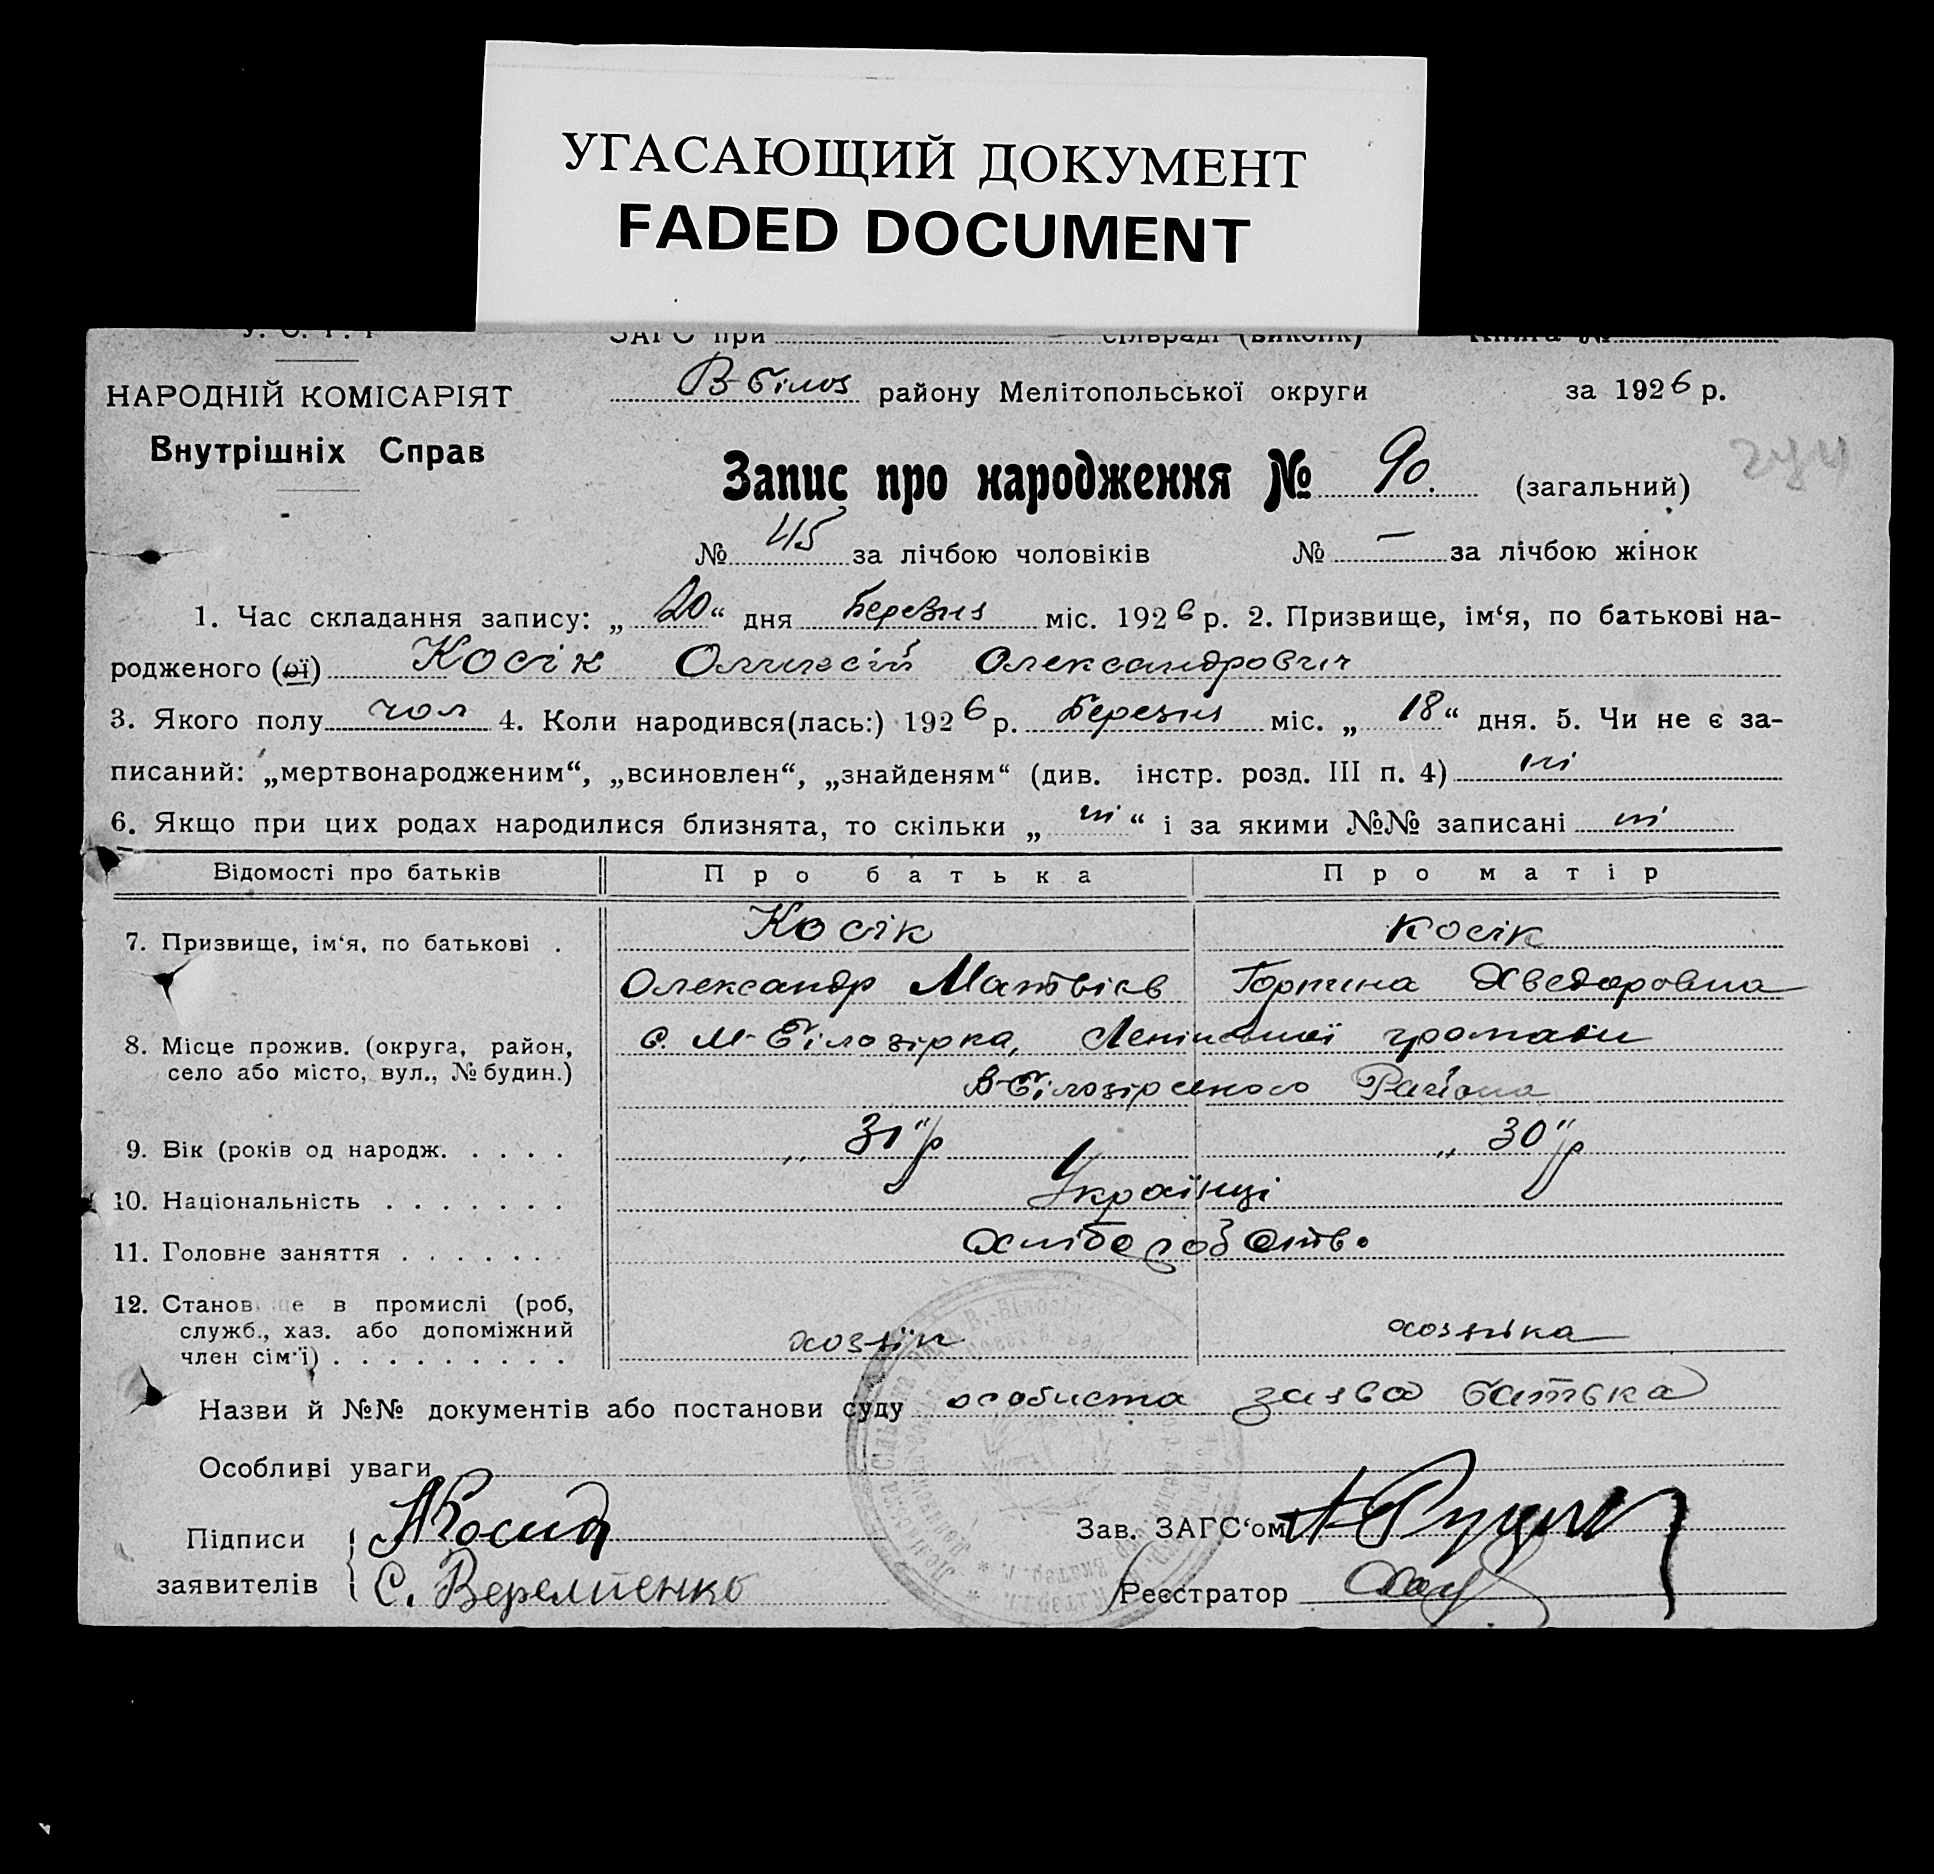 УГАСАЮЩИЙ ДОКУМЕНТ
FADED DOCUMENT
У. С. Р. Р
ЗАГС при сільраді (виконк) Книга №
НАРОДНІЙ КОМІСАРІЯТ
В-Білоз району Мелітопольської округи за 1926 р.
Внутрішніх Справ
Запис про народження № 90. (загальний)
№ 45 за лічбою чоловіків № — за лічбою жінок
1. Час складання запису: „ 20 “ дня Березня міс. 1926 р. 2. Призвище, ім‘я, по батькові на-
родженого (ої) Косік Олексій Олександрович
3. Якого полу чол 4. Коли народився(лась:) 1926 р. Березня міс. „ 18 “ дня. 5. Чи не є за-
писаний: „мертвонародженим“, „всиновлен“, „знайденям“ (див. інстр. розд. III п. 4) ні
6. Якщо при цих родах народилися близнята, то скільки „ ні “ і за якими №№ записані ні
Відомості про батьків Про батька Про матір
7. Призвище, ім‘я, по батькові . Косік Косік
Олександр Матвіїв Горпина Хведоровна
8. Місце прожив. (округа, район, с. М-Білозірка, Ленінської громади
село або місто, вул., № будин.) В-Білозірського Района
9. Вік (років од народж. . . . . „ 31 “ р „ 30 “ р
10. Національність . . . . . . . Українці
11. Головне заняття . . . . . . . Хліборобство
12. Становище в промислі (роб,
служб., хаз. або допоміжний хозяїн хозяйка
член сім‘ї) . . . . . . . . .
Назви й №№ документів або постанови суду особиста заява батька
Особливі уваги
Підписи А Косик Зав. ЗАГС‘ом
заявителів С. Веремпенко Реєстратор